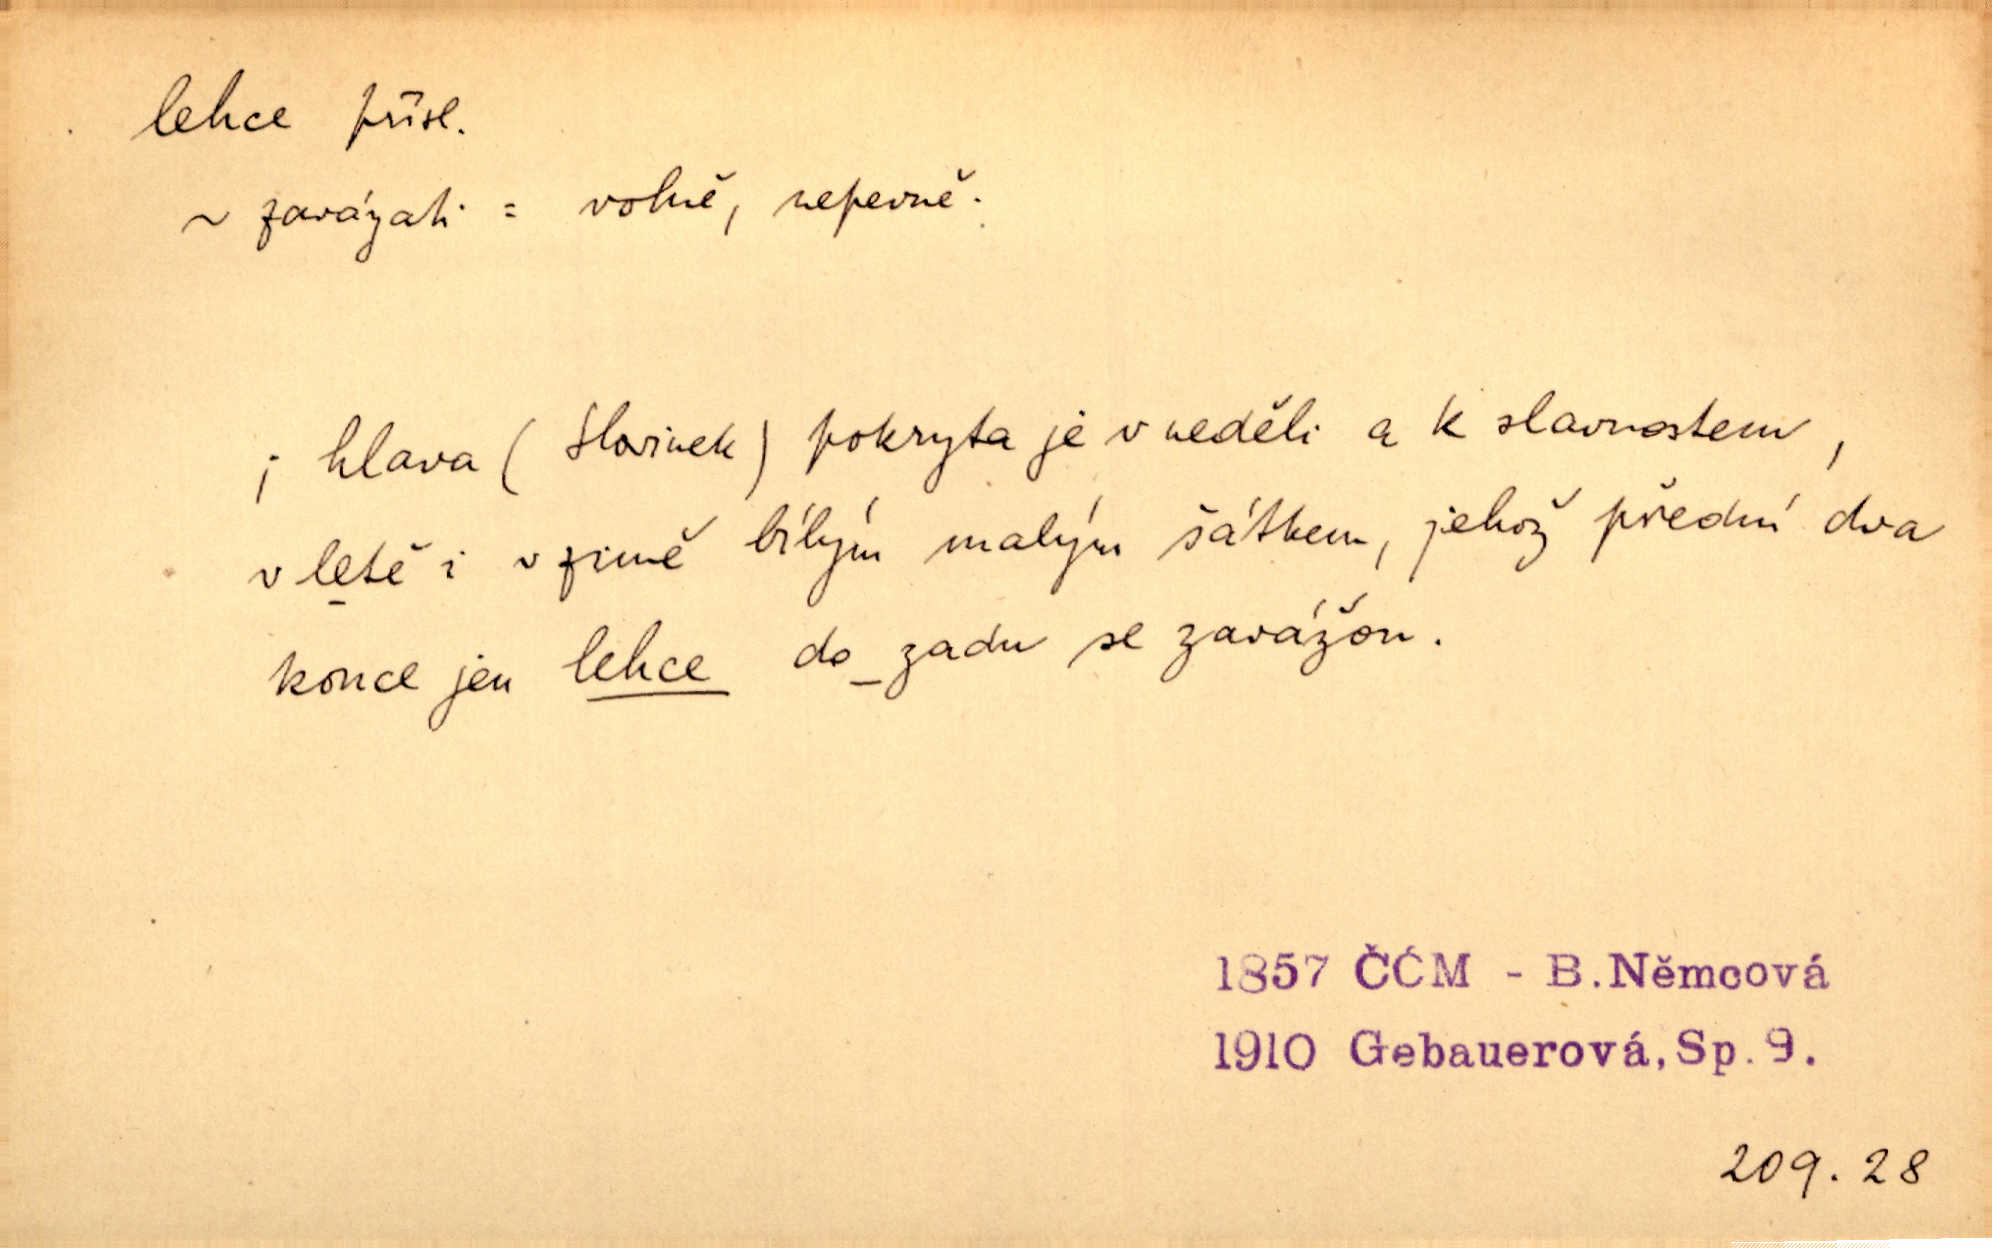 lehce přísl.
~ zavázati = volně, nepevně.
; hlava (Slovinek) pokryta je v neděli a k slavnostem,
v letě i v zimě bílým malým šátkem, jehož přední dva
konce jen lehce do_zadu se zavážou.
1857 ČČM - B.Němcová
1910 Gebauerová, Sp. 9.
209.28